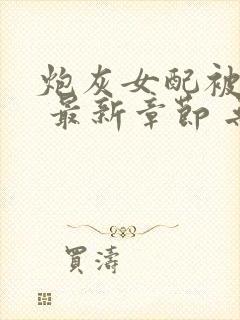 炮灰女配被
最新章節
買濤